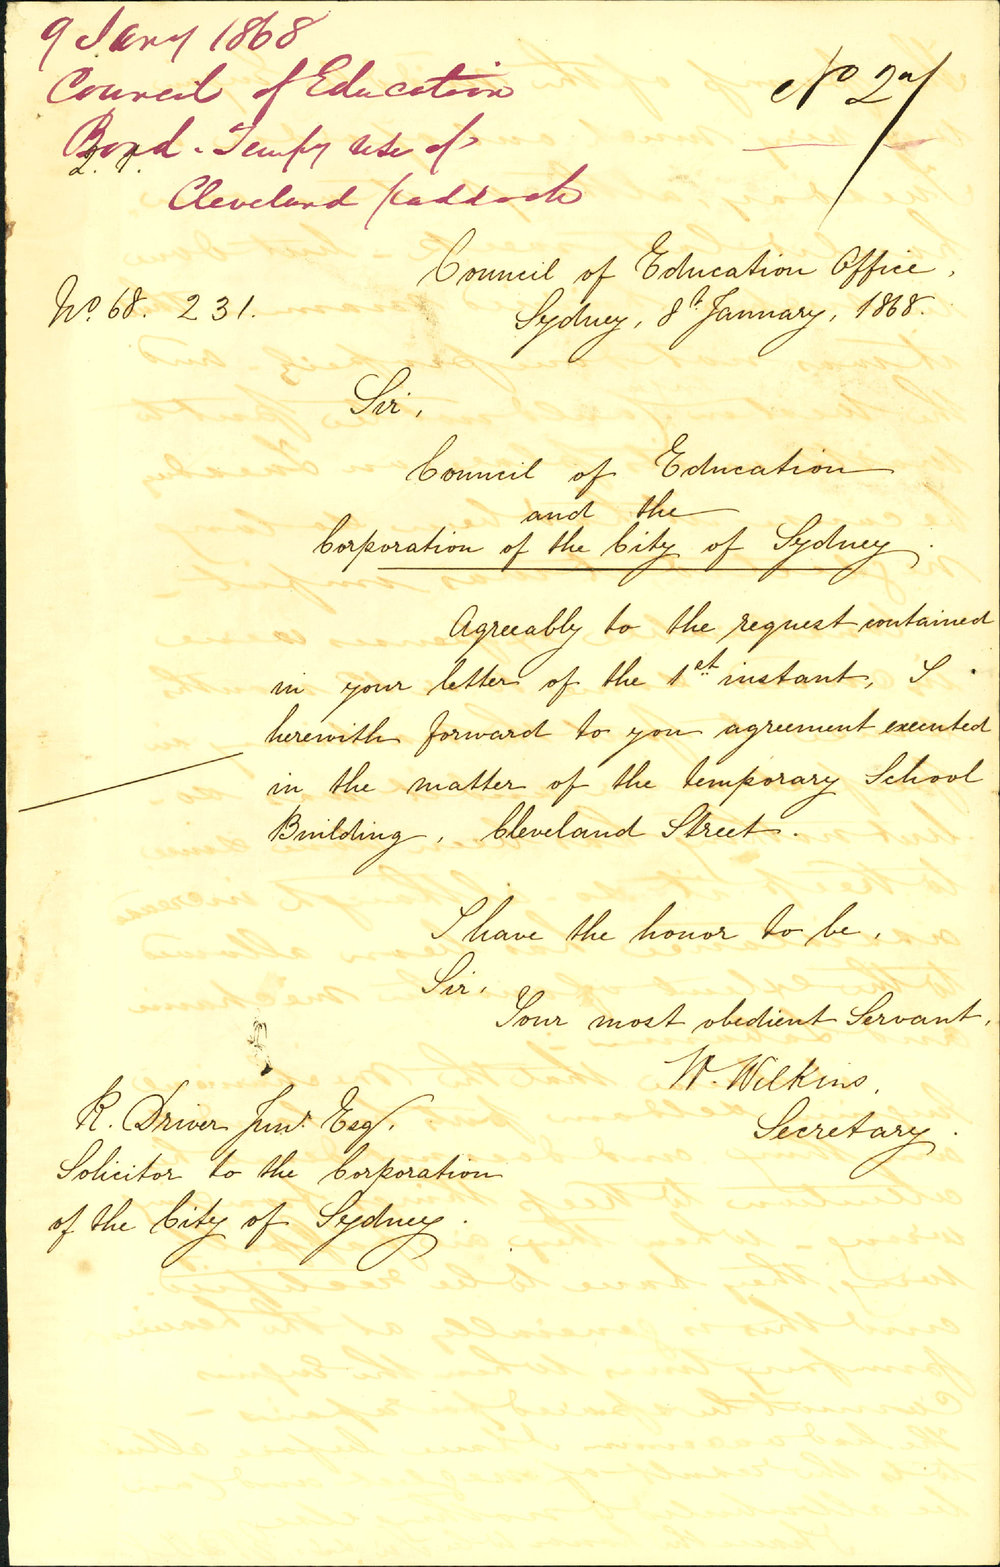 9 Jany 1868
Council of Education
Bond - Tempy use of
Cleveland Paddock
No 27
Council of Education Office,
Sydney, 8th January, 1868.
No. 68. 231.
Sir,
Council of Education
and the
Corporation of the City of Sydney.
Agreeably to the request contained
in your letter of the 1st instant, I
herewith forward to you agreement executed
in the matter of the temporary School
Building, Cleveland Street.
I have the honor to be,
Sir,
Your most obedient Servant,
W. Wilkins,
Secretary.
R. Driver Junr. Esq.
Solicitor to the Corporation
of the City of Sydney.